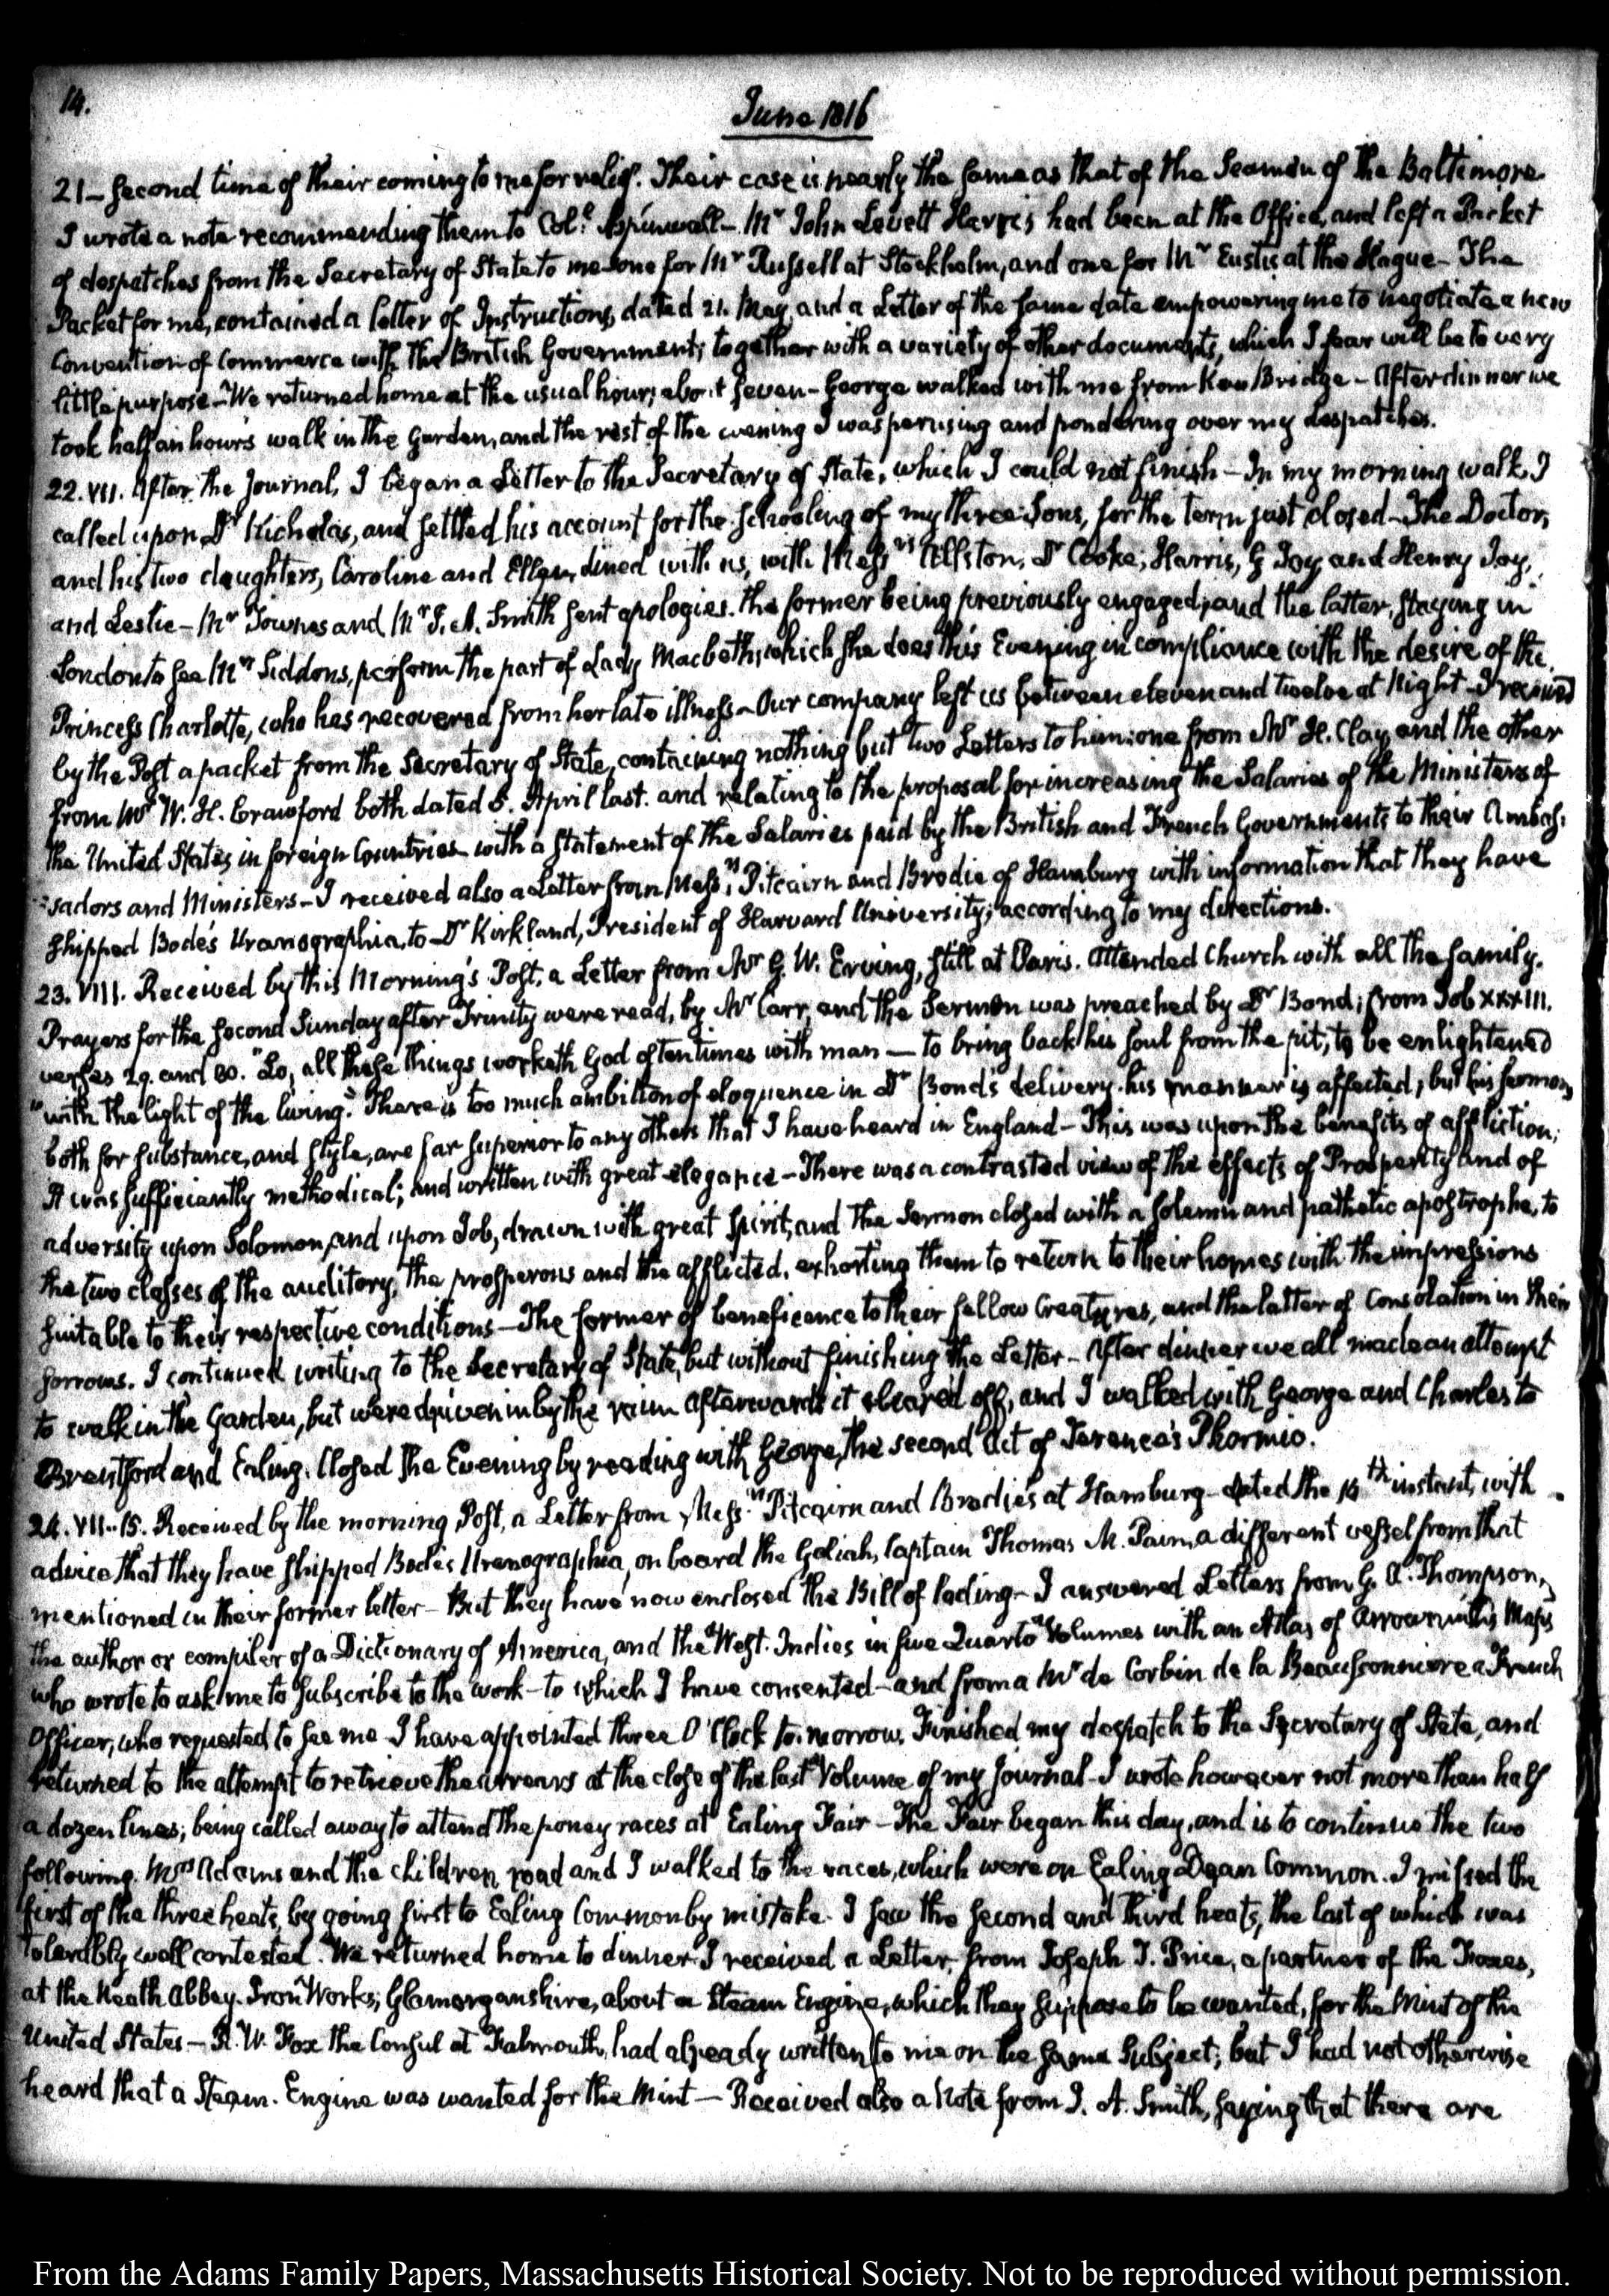 14.
June 1816
21- second time of their coming to me for relief. Their case is nearly the same as that of the Seamen of the Baltimore.
I wrote a note recommending them to Coll. Aspinwall- Mr John Levett Harris had been at the Office, and left a Packet
of despatches from the Secretary of State to me- one for Mr Russell at Stockholm, and one for Mr Eustis at the Hague- The
Packet for me, contained a letter of Instructions, dated 21. May, and a Letter of the same date empowering me to negotiate a new
Convention of Commerce with the British Government; together with a variety of other documents, which I fear will be to very
little purpose- We returned home at the usual hour; about seven- George walked with me from Kew Bridge- After dinner we
took half an hour's walk in the Garden, and the rest of the evening I was perusing and pondering over my despatches.
22. VII. After the Journal, I began a Letter to the Secretary of State, which I could not finish- In my morning walk I
called upon Dr Nicholas, and settled his account for the schooling of my three Sons, for the term just closed- The Doctor,
and his two daughters, Caroline and Ellen, dined with us, with Messrs Allston, Dr Cooke, Harris, G Joy and Henry Joy,
and Leslie- Mr Townes and Mr J. A. Smith sent apologies. The former being previously engaged; and the latter, staying in
London to see Mrs Siddons, perform the part of Lady Macbeth, which she does this Evening in compliance with the desire of the
Princess Charlotte, who has recovered from her late illness- Our company left us between eleven and twelve at Night- I received
by the Post a packet from the Secretary of State, containing nothing but two Letters to him: one from Mr H. Clay, and the other
from Mr W. H. Crawford both dated 5. April last. and relating to the proposal for increasing the Salaries of the Ministers of
the United States, in foreign Countries- with a statement of the Salaries paid by the British and French Governments to their Ambas-
:sadors and Ministers- I received also a Letter from Messrs Pitcairn and Brodie of Hamburg with information that they have
shipped Bode's Uranographia, to Dr Kirkland, President of Harvard University; according to my directions.
23. VIII. Received by this Morning's Post, a Letter from Mr G. W. Erving, still at Paris. Attended Church with all the family.
Prayers for the second Sunday after Trinity were read, by Mr Carr, and the Sermon was preached by Dr Bond; from Job XXXIII.
verses 29. and 30. "Lo, all these things worketh God oftentimes with man — to bring back his soul from the pit, to be enlightened
"with the light of the living." There is too much ambition of eloquence in Dr Bond's delivery. his manner is affected; but his sermons
both for substance, and style, are far superior to any others that I have heard in England- This was upon the benefits of affliction;
It was sufficiently methodical; and written with great elegance- There was a contrasted view of the effects of Prosperity and of
adversity upon Solomon, and upon Job, drawn with great spirit, and the Sermon closed with a solemn and pathetic apostrophe, to
the two classes of the auditory, the prosperous and the afflicted. exhorting them to return to their homes with the impressions
suitable to their respective conditions- The former of beneficence to their fellow Creatures, and the latter of Consolation in their
sorrows. I continued writing to the Secretary of State, but without finishing the Letter- After dinner we all made an attempt
to walk in the Garden, but were driven in by the rain afterwards it cleared off, and I walked with George and Charles to
Brentford and Ealing. Closed the Evening by reading with George, the second Act of Terence's Phormio.
24. VII..15. Received by the morning Post, a Letter from Messrs Pitcairn and Brodie's at Hamburg- dated the instant, with
advice that they have shipped Bode's Uranographia, on board the Goliah, Captain Thomas M. Paim, a different vessel from that
mentioned in their former letter- But they have now enclosed the Bill of lading- I answered Letters from G. A. Thompson,
the author or compiler of a Dictionary of America, and the West. Indies in five Quarto Volumes with an Atlas of Arrowsmith's Maps
who wrote to ask me to subscribe to the work- to which I have consented- and from a Mr de Corbin de la Beaussonniere a French
Officer, who requested to see me- I have appointed three O'Clock to-morrow. Finished my despatch to the Secretary of State, and
returned to the attempt to retrieve the arrears at the close of the last Volume of my Journal- I wrote however not more than half
a dozen lines; being called away to attend the poney races at Ealing Fair- The Fair began this day, and is to continue the two
following. Mrs Adams and the children road and I walked to the races, which were on Ealing Dean Common. I missed the
first of the three heats, by going first to Ealing Common by mistake. I saw the second and third heats, the last of which was
tolerably well contested. We returned home to dinner- I received a Letter from Joseph T. Price, a partner of the Foxes,
at the Neath Abbey Iron Works, Glamorganshire, about a Steam Engine, which they suppose to be wanted, for the Mint of the
United States- R. W. Fox the Consul at Falmouth, had already written to me on the same subject; but I had not otherwise
heard that a Steam. Engine was wanted for the Mint- Received also a Note from J. A. Smith, saying that there are
From the Adams Family Papers, Massachusetts Historical Society. Not to be reproduced without permission.